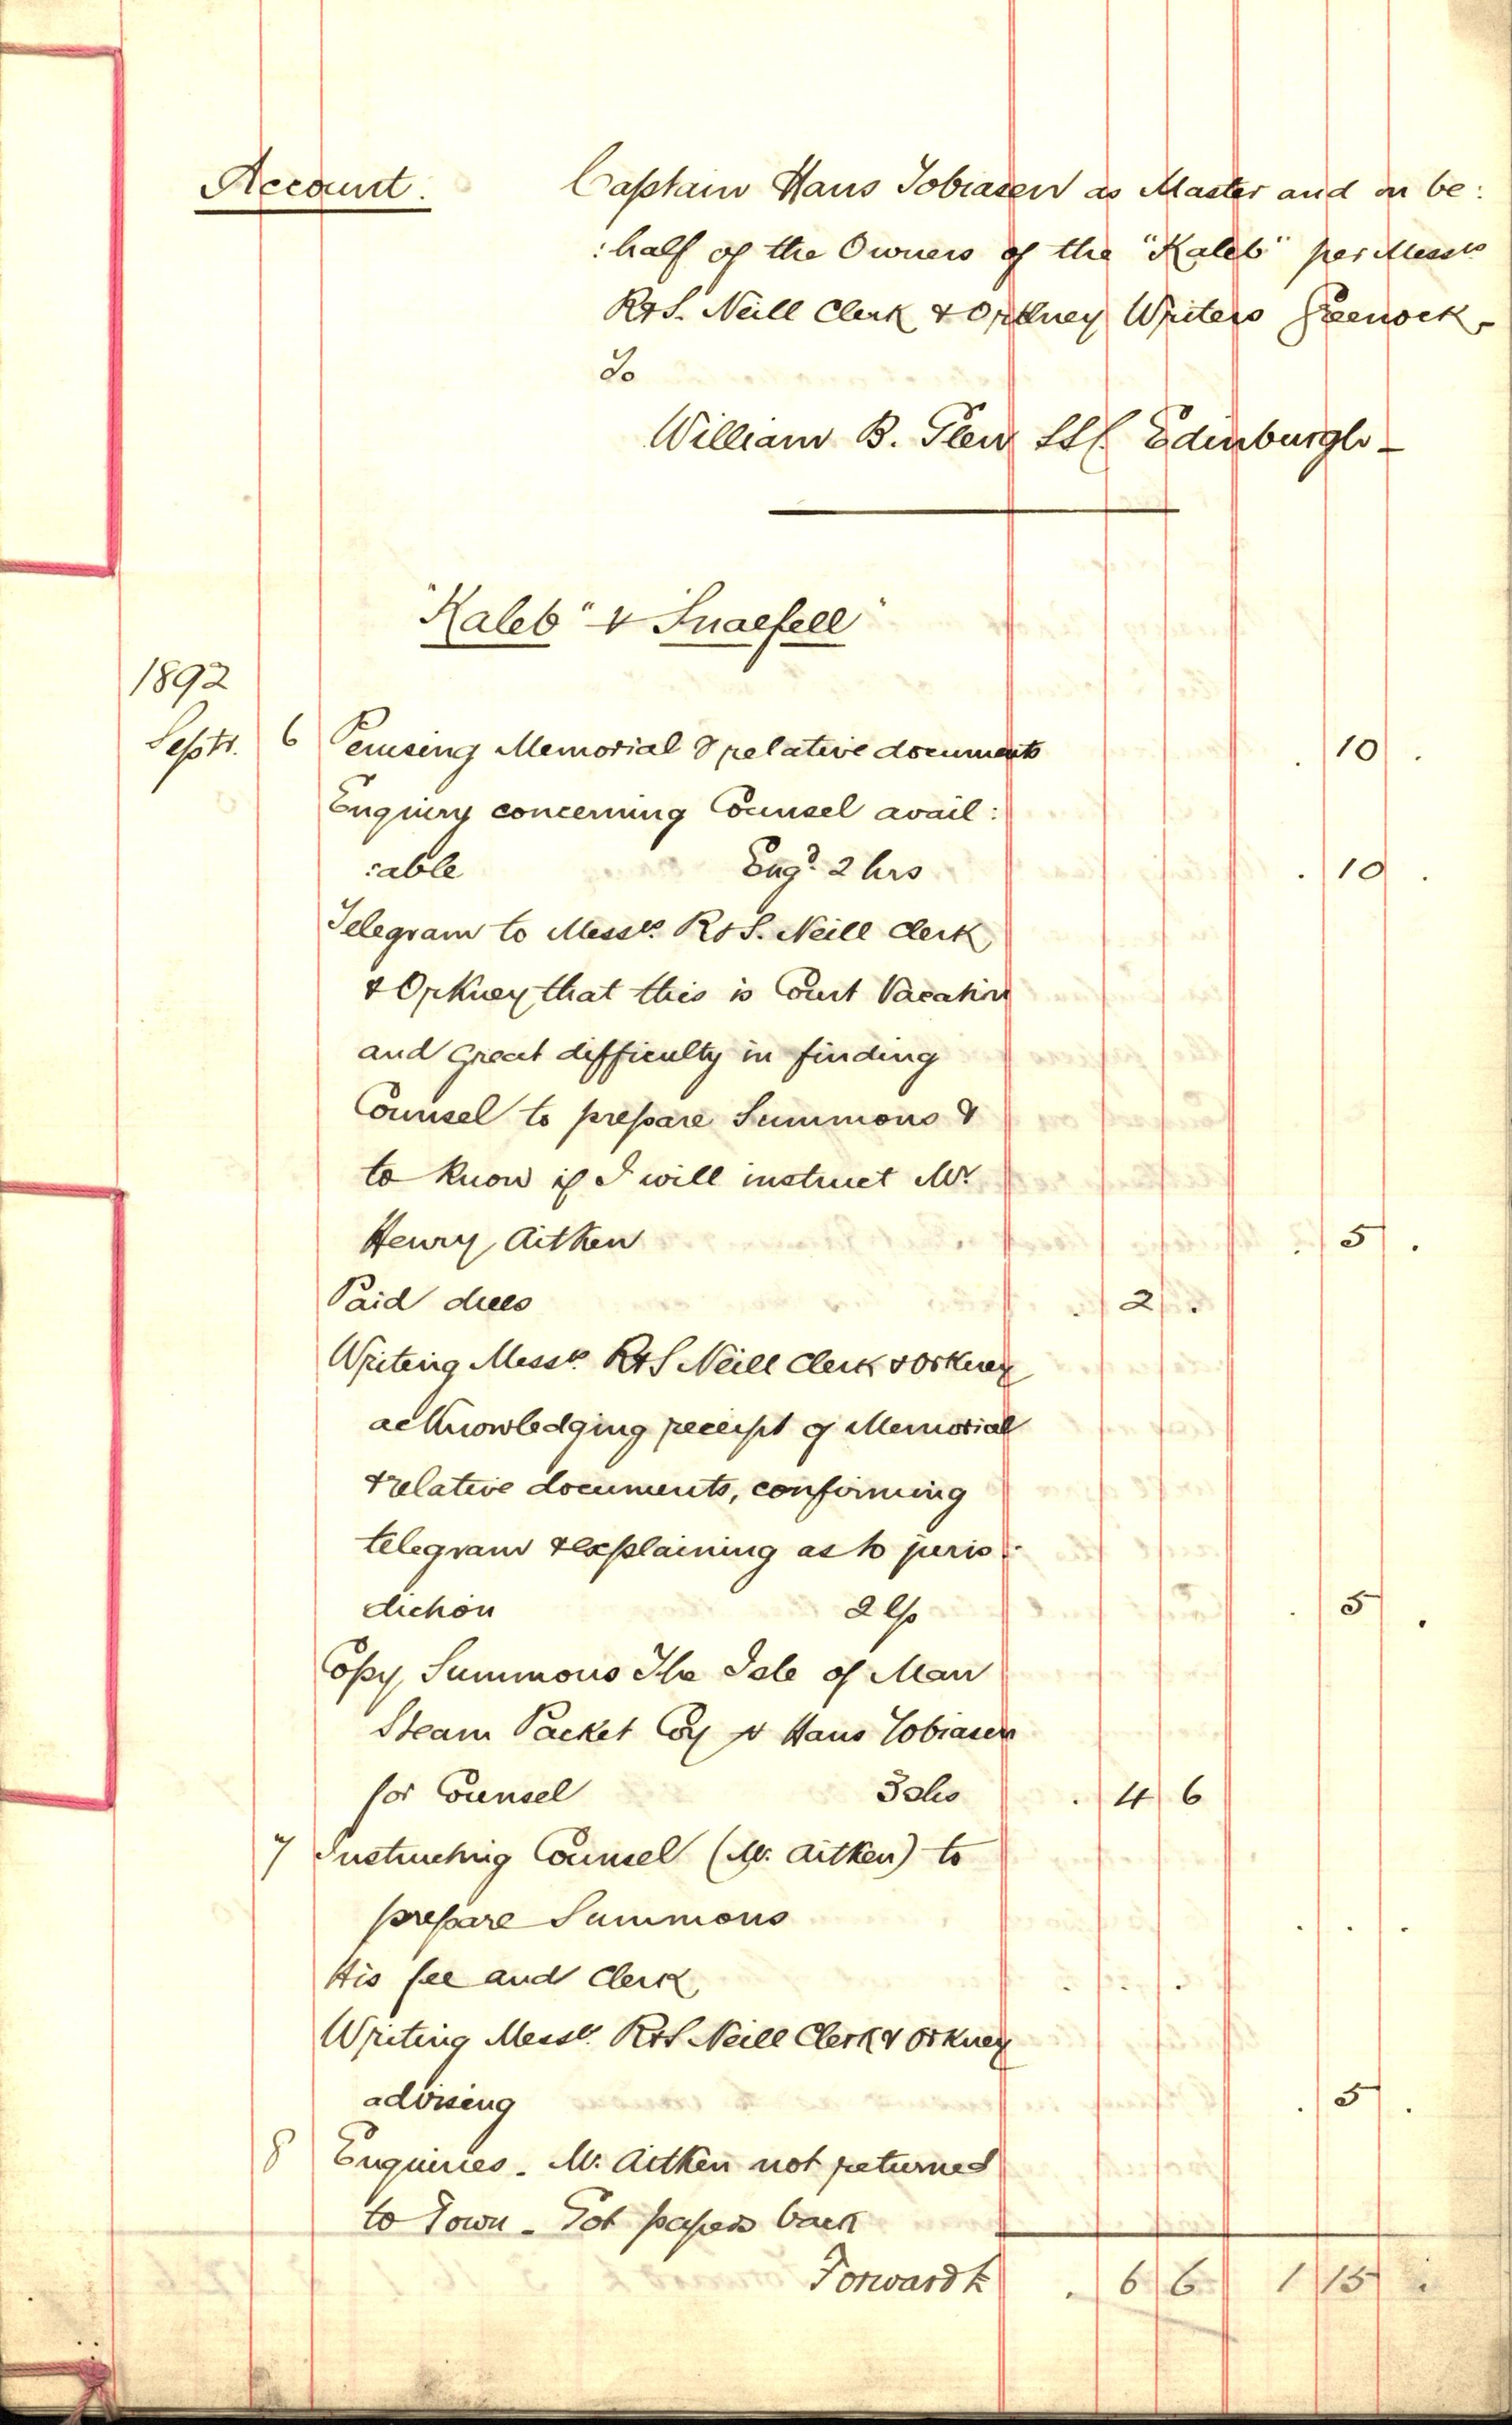 Account. Captain Hans Tobiasen as Master and on be:
:half of the Owners of the "Kaleb" per Messrs
R & S. Neill Clerk & Orkney Writers Greenock -
To
William B. Glen SSC Edinburgh -
"Kaleb" v "Snaefell"
1892
Septr. 6 Perusing Memorial & relative documents . 10 .
Enquiry concerning Counsel avail:
:able Engd. 2 hrs . 10 .
Telegram to Messrs. R & S. Neill Clerk
& Orkney that this is Court Vacation
and great difficulty in finding
Counsel to prepare Summons &
to know if I will instruct Mr
Henry Aitken . 5 .
Paid dues . 2 .
Writing Messrs. R & S Neill Clerk & Orkney
acknowledging receipt of Memorial
& relative documents, confirming
telegram & explaining as to juris :
diction 2 . 5 .
Copy Summons The Isle of Man
Steam Packet Coy v Hans Tobiasen
for Counsel 3 shs . 4 6
7 Instructing Counsel (Mr. Aitken) to
prepare Summons . . .
His fee and Clerk . . .
Writing Messrs. R & S Neill Clerk & Orkney
advising . 5 .
8 Enquiries. Mr. Aitken not returned
to Town - Got papers back
Forward £ . 6 6 1 15 .